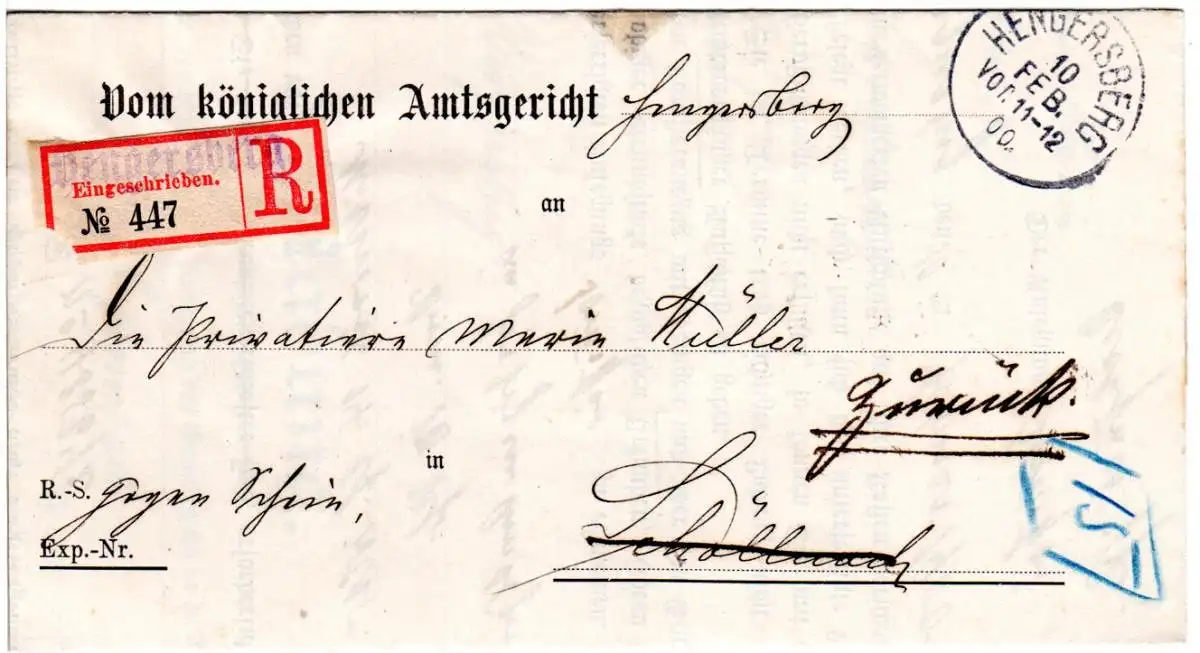 HENGERSBERG
10
FEB.
VOR. 11-12
00.
Vom königlichen Amtsgericht Hengersberg
Hengersberg
Eingeschrieben.
№ 447
R
an
Die Privatiere Marie Müller
Zurück.
in
R.-S. gegen Schein,
Schöllnach
Exp.-Nr.